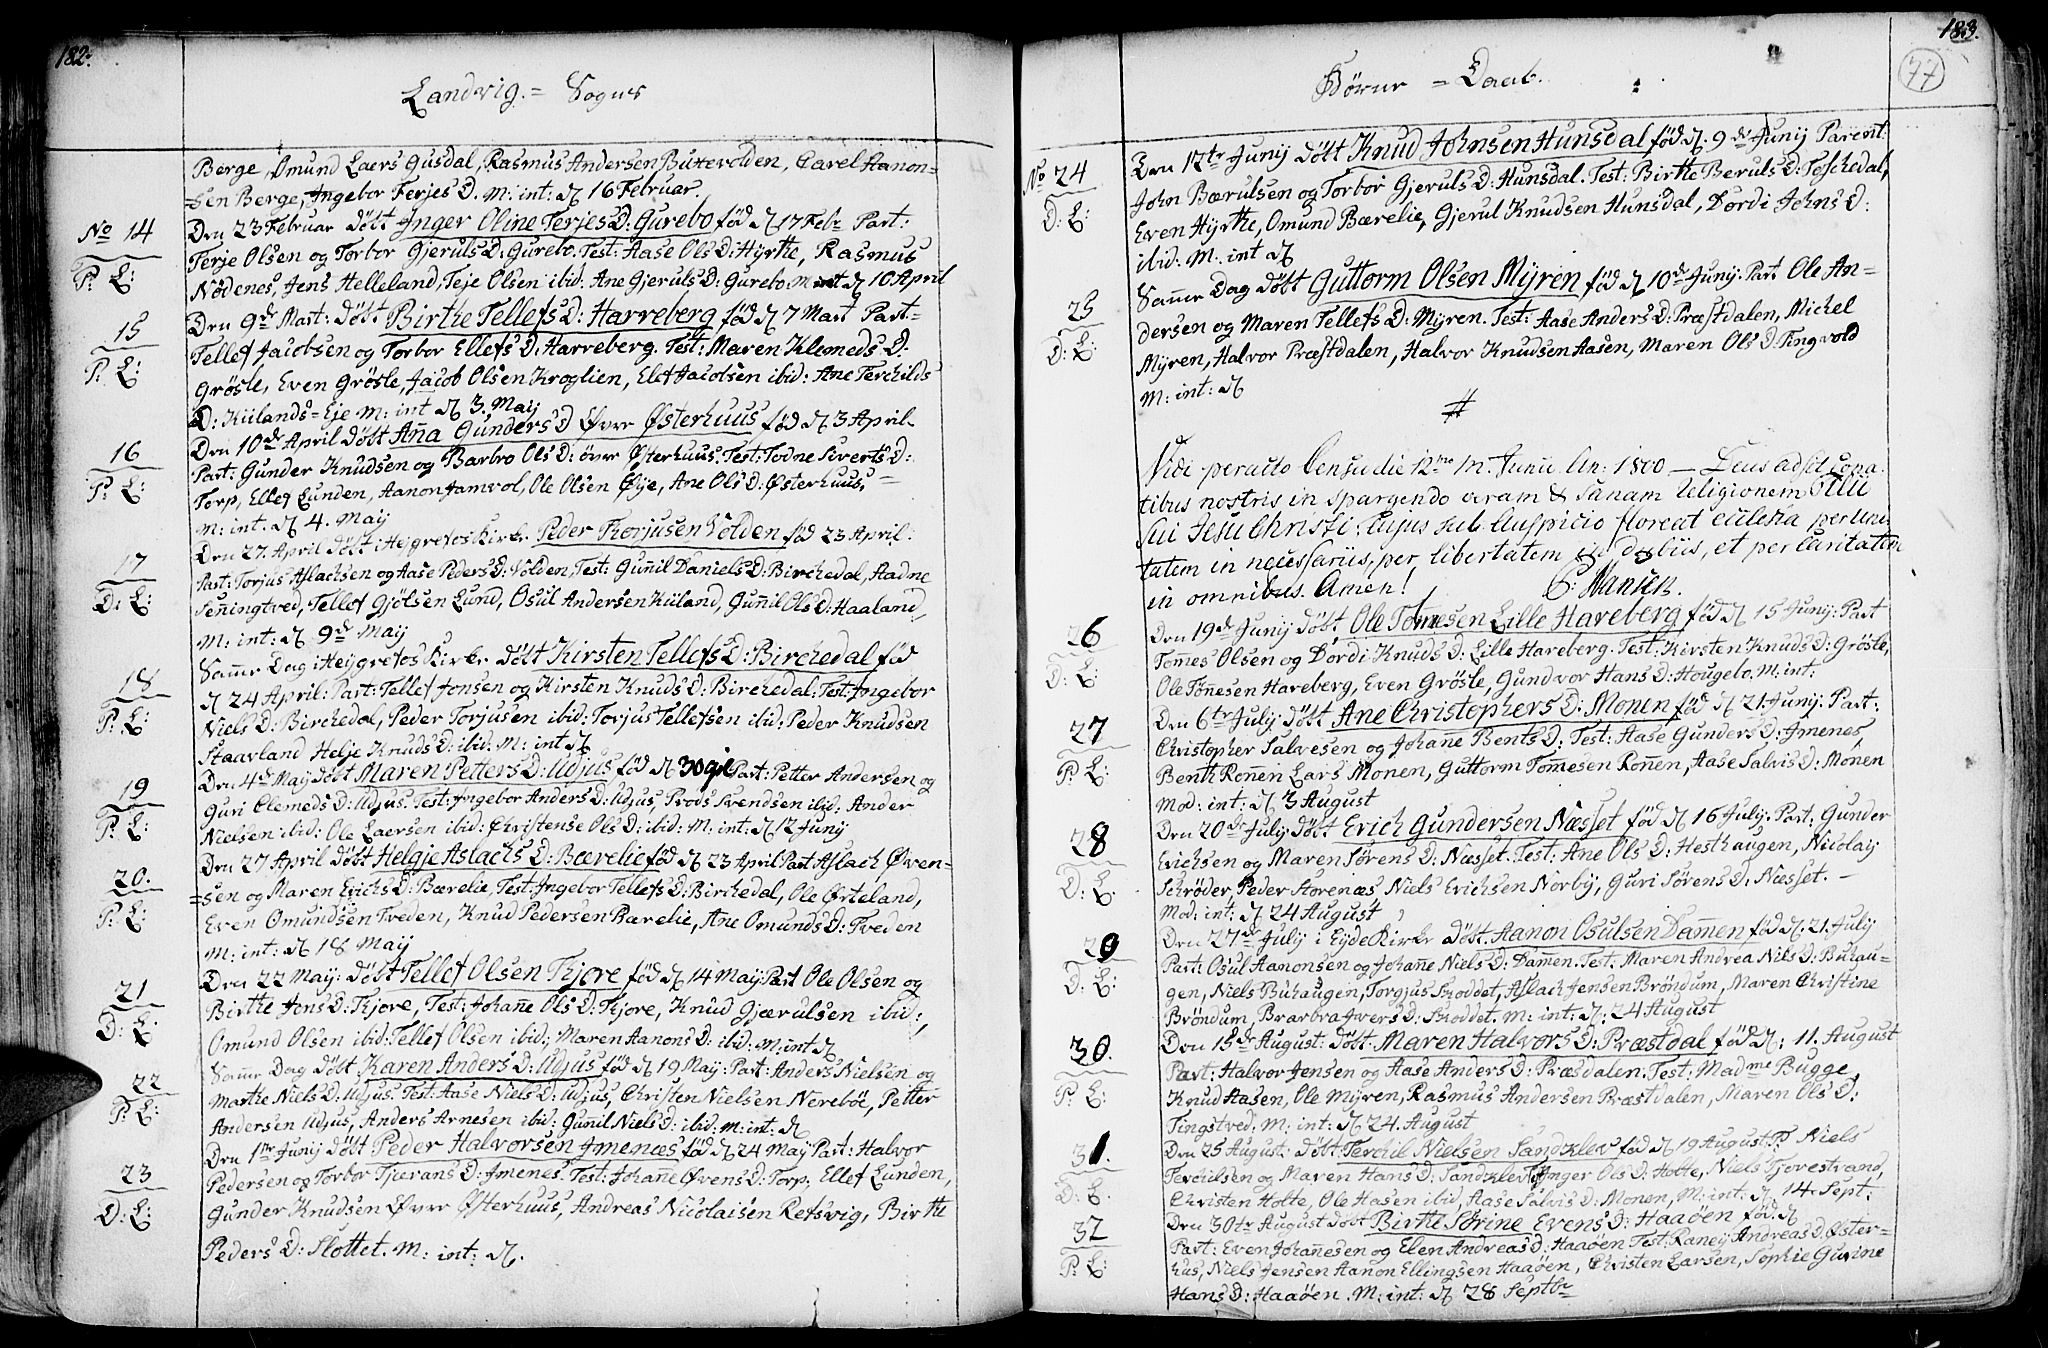 182.
Landvig. = Sogns
Berge, Omund Laers Gusdal, Rasmus Andersen Buxevolden, Carel Aanon=
=sen Berge, Ingebor Terjes D. M: int: d. 16 Februar.
No 14
P: L:
Den 23 Februar döbt Inger Oline Terjes D: Gurebo föd d. 17 Febr Part:
Terje Olsen og Torbor Gjeruls D: Gurebo. Test: Aase Ols D: Hyrthe, Rasmus
Nødenes, Jens Helleland, Teje Olsen ibid. Ane Gjeruls D: Gurebo. M int d. 10 April
15
P: L:
Den 9de Mart: döbt Birthe Tellefs D: Harreberg föd d. 7 Mart Part:
Tellef Jacobsen og Torbor Ellefs D: Harreberg. Test: Maren Klemeds D:
Grösle, Even Grösle, Jacob Olsen Kroglien, Elef Jacobsen ibid: Ane Terchilds
D: Kiilands = Eje M: int d. 3. Maij
16
P: L:
Den 10de April döbt Anna Gunders D Øvre Østerhuus föd d. 3 April
Part: Gunder Knudsen og Barbro Ols D: övre Østerhuus. Test: Todne Siverts D:
Torp, Ellef Lunden, Aanon Jamvol, Ole Olsen Øije, Ane Ols D: Østerhuus,
M: int. d. 4. Maij
17
D: L:
Den 27. April döbt i Hejgrefos Kirke Peder Torjusen Volden föd 23 April:
Part: Torjus Aslachsen og Aase Peders D: Volden, Test: Gunnil Daniels D: Birchedal, Aadne
Senningtved, Tellef Gjölsen Lund, Osul Andersen Kiiland, Gunnil Ols D: Haaland,
M: int: d. 9de Maij
18
P: L:
Samme Dag i Heijgrefos Kirke döbt Kirsten Tellefs D: Birchedal föd
d. 24 April: Part: Tellef Jonsen og Kirsten Knuds D: Birchedal: Test: Ingebor
Niels D: Birchedal, Peder Torjusen ibid: Torjus Tellefsen ibid: Peder Knudsen
Staarland Helje Knuds D: ibid: M: int d.
19
P: L:
Den 4de Maij döbt Maren Petters D: Udjus föd d. 30 Part: Petter Andersen og
Guri Clemeds D: Udjus. Test: Ingebor Anders D: Udjus, Prods Svendsen ibid: Ander
Nielsen ibid: Ole Laersen ibid: Christense Ols D: ibid: M: int: d. 12 Junij
20.
P: L:
Den 27 April döbt Helgje Aslachs D: Bærelie föd d. 23 April Part Aslach Øven=
=sen og Maren Erichs D: Bærelie, Test: Ingebor Tellefs D: Birchedal, Ole Örteland,
Even Omundsen Tveden, Knud Pedersen Bærelie, Ane Omunds D: Tveden
M: int: d. 18 Maij
21
D: L:
Den 22 Maij: döbt Tellef Olsen Tjore föd d. 14 Maij: Part Ole Olsen og
Birthe Jens D: Tjore, Test: Johanne Ols D: Tjore, Knud Gjærulsen ibid:,
Omund Olsen ibid: Tellef Olsen ibid:, Maren Aanons D: ibid: M: int d.
22
P: L:
Samme Dag döbt Karen Anders D: Udjus föd d. 19 Maij: Part: Anders Nielsen og
Marthe Niels D: Udjus. Test: Aase Niels D: Udjus, Christen Nielsen Nereböe, Petter
Andersen Udjus, Anders Arnesen ibid: Gunil Niels D: ibid: M: int: d.
23
D: L:
Den 1ste Junij döbt Peder Halvorsen Imenæs föd d. 24 Maij Part: Halvor
Pedersen og Torbor Tjærans D: Imenes. Test: Johanne Øvens D: Torp, Ellef Lunden,
Gunder Knudsen Øvre Østerhuus, Andreas Nicolaisen Retsvig, Birthe
Peders D: Slottet. M: int: d.
183.
77
Börne = Daab.
No 24
D: L:
Den 12te Junij döbt Knud Johnsen Hunsdal föd d. 9de Junij Parent:
John Bærulsen og Torbor Gjeruls D: Hunsdal. Test: Birthe Beruls D: Toschedal,
Even Hyrthe, Omund Bærelie, Gjerul Knudsen Hunsdal, Dordi Johns D:
ibid: M: int d.
25
D: L:
Samme Dag döbt Guttorm Olsen Myren föd d. 10de Junij: Part Ole An=
dersen og Maren Tellefs D: Myren. Test: Aase Anders D: Præstdalen, Michel
Myren, Halvor Præstdalen, Halvor Knudsen Aasen, Maren Ols D: Tingvold
M: int: d.
#
Vidi peracto Censu die 12me M. Junii An: 1800 — Deus adsit cona
tibus nostris in spargendo veram & sanam religionem filii
sui Jesu Christi: cujus sub auspicio floreat ecclesia per uni
tatem in necessariis, per libertatem in dubiis, et per caritatem
in omnibus. Amen! P: Hansen.
26
D: L:
Den 19de Junij döbt Ole Tomesen Lille Hareberg föd d. 15 Junij: Part
Tommes Olsen og Dordi Knuds D: Lille Hareberg. Test: Kirsten Knuds D: Grösle,
Ole Tönnesen Hareberg, Even Grösle, Gundvor Hans D: Hougebo. M: int:
27
P: L:
Den 6te Julij döbt Ane Christophers D: Monen föd d. 21 Junij: Part:
Christopher Salvesen og Johanne Bents D: Test: Aase Gunders D: Imenes,
Benth Ronnen Lars Monen, Guttorm Tommesen Ronnen, Aase Salvis D: Monen
Mod: int: d. 3 August
28
D: L.
Den 20de Julij döbt Erich Gundersen Næsset föd d. 16 Julij: Part: Gunder
Erichsen og Maren Sörens D: Næsset. Test: Ane Ols D: Hesthaugen, Nicolaij
Schröder, Peder Storenæs Niels Erichsen Norbij, Guri Sörens D: Næsset. —
Mod: int: d. 24 August
29
D: L:
Den 27de Julij i Eijde Kirke döbt Aanon Osulsen Dammen föd d. 21. Julij
Part: Osul Aanonsen og Johanne Niels D: Dammen. Test: Maren Andrea Nils D: Buhau=
gen, Niels Buhaugen, Torgjus Skoddet, Aslach Jensen Bröndum, Maren Christine
Bröndum, Brarbra Ivers D: Skoddet. M: int: d: 24 August
30.
P: L:
Den 15de August: döbt Maren Halvors D: Præstdal föd d: 11. August
Part: Halvor Jensen og Aase Anders D: Præsdalen. Test: Madme Bugge,
Knud Hasen, Ole Myren, Rasmus Andersen Præstdalen, Maren Ols D:
Tingstved. M: int: d. 24. August
31.
D: L.
Den 25 August: döbt Terchil Nielsen Sandklev föd d. 19 August P: Niels
Terchilsen og Maren Hans D: Sandklev T: Inger Ols D: Hotte, Niels Tjorestrand,
Christen Holte, Ole Hasen ibid, Aase Salvis D: Monen, M: int: d. 14. Sept:
32
P: L:
Den 30te August döbt Birthe Sörine Evens D: Haaöen föd d.
Part: Even Johannesen og Elen Andreas D: Haaöen Test: Raneij Andreas D: Øster=
hus, Niels Jensen Aanon Ellingsen Haaöen, Christen Larsen, Sophie Gurine
Hans D: Haaöen. M: int: d. 28 Septbr